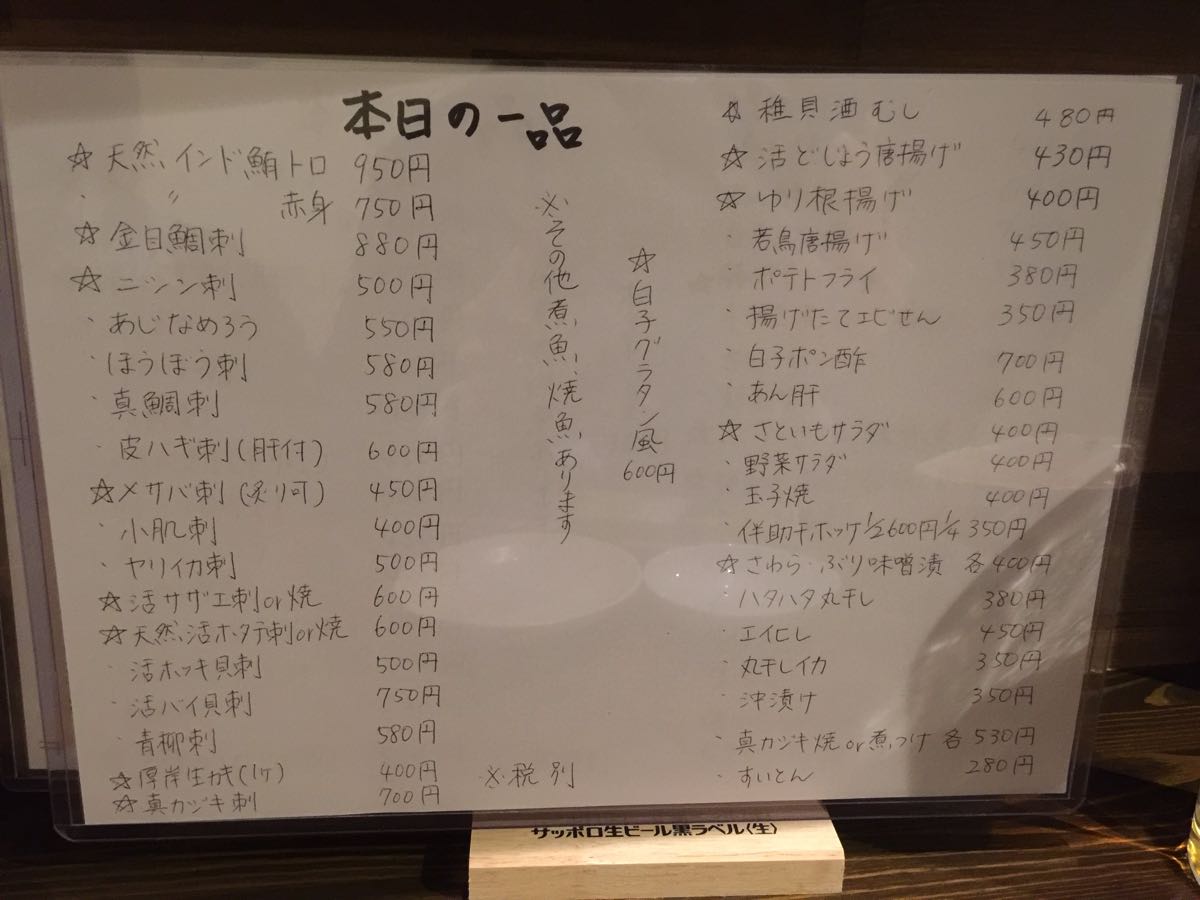 本日の一品
☆天然インド鮪トロ 950円
・ 〃 赤身 750円
☆金目鯛刺 880円
☆ニシン刺 500円
・あじなめろう 550円
・ほうぼう刺 580円
・真鯛刺 580円
・皮ハギ刺(肝付) 600円
☆〆サバ刺(炙り可) 450円
・小肌刺 400円
・ヤリイカ刺 500円
☆活サザエ刺or焼 600円
☆天然活ホタテ刺or焼 600円
・活ホッキ貝刺 500円
・活バイ貝刺 750円
・青柳刺 580円
☆厚岸生かき(1ヶ) 400円
☆真カジキ刺 700円
※その他煮魚、焼魚あります
☆白子グラタン風
600円
※税別
☆稚貝酒むし 480円
☆活どじょう唐揚げ 430円
☆ゆり根揚げ 400円
・若鳥唐揚げ 450円
・ポテトフライ 380円
・揚げたてエビせん 350円
・白子ポン酢 700円
・あん肝 600円
☆さといもサラダ 400円
・野菜サラダ 400円
・玉子焼 400円
・伴助干ホッケ1/2 600円 1/4 350円
☆さわら・ぶり味噌漬 各400円
ハタハタ丸干し 380円
・エイヒレ 450円
・丸干しイカ 350円
・沖漬け 350円
・真カジキ焼or煮つけ 各530円
・すいとん 280円
サッポロ生ビール黒ラベル〈生〉